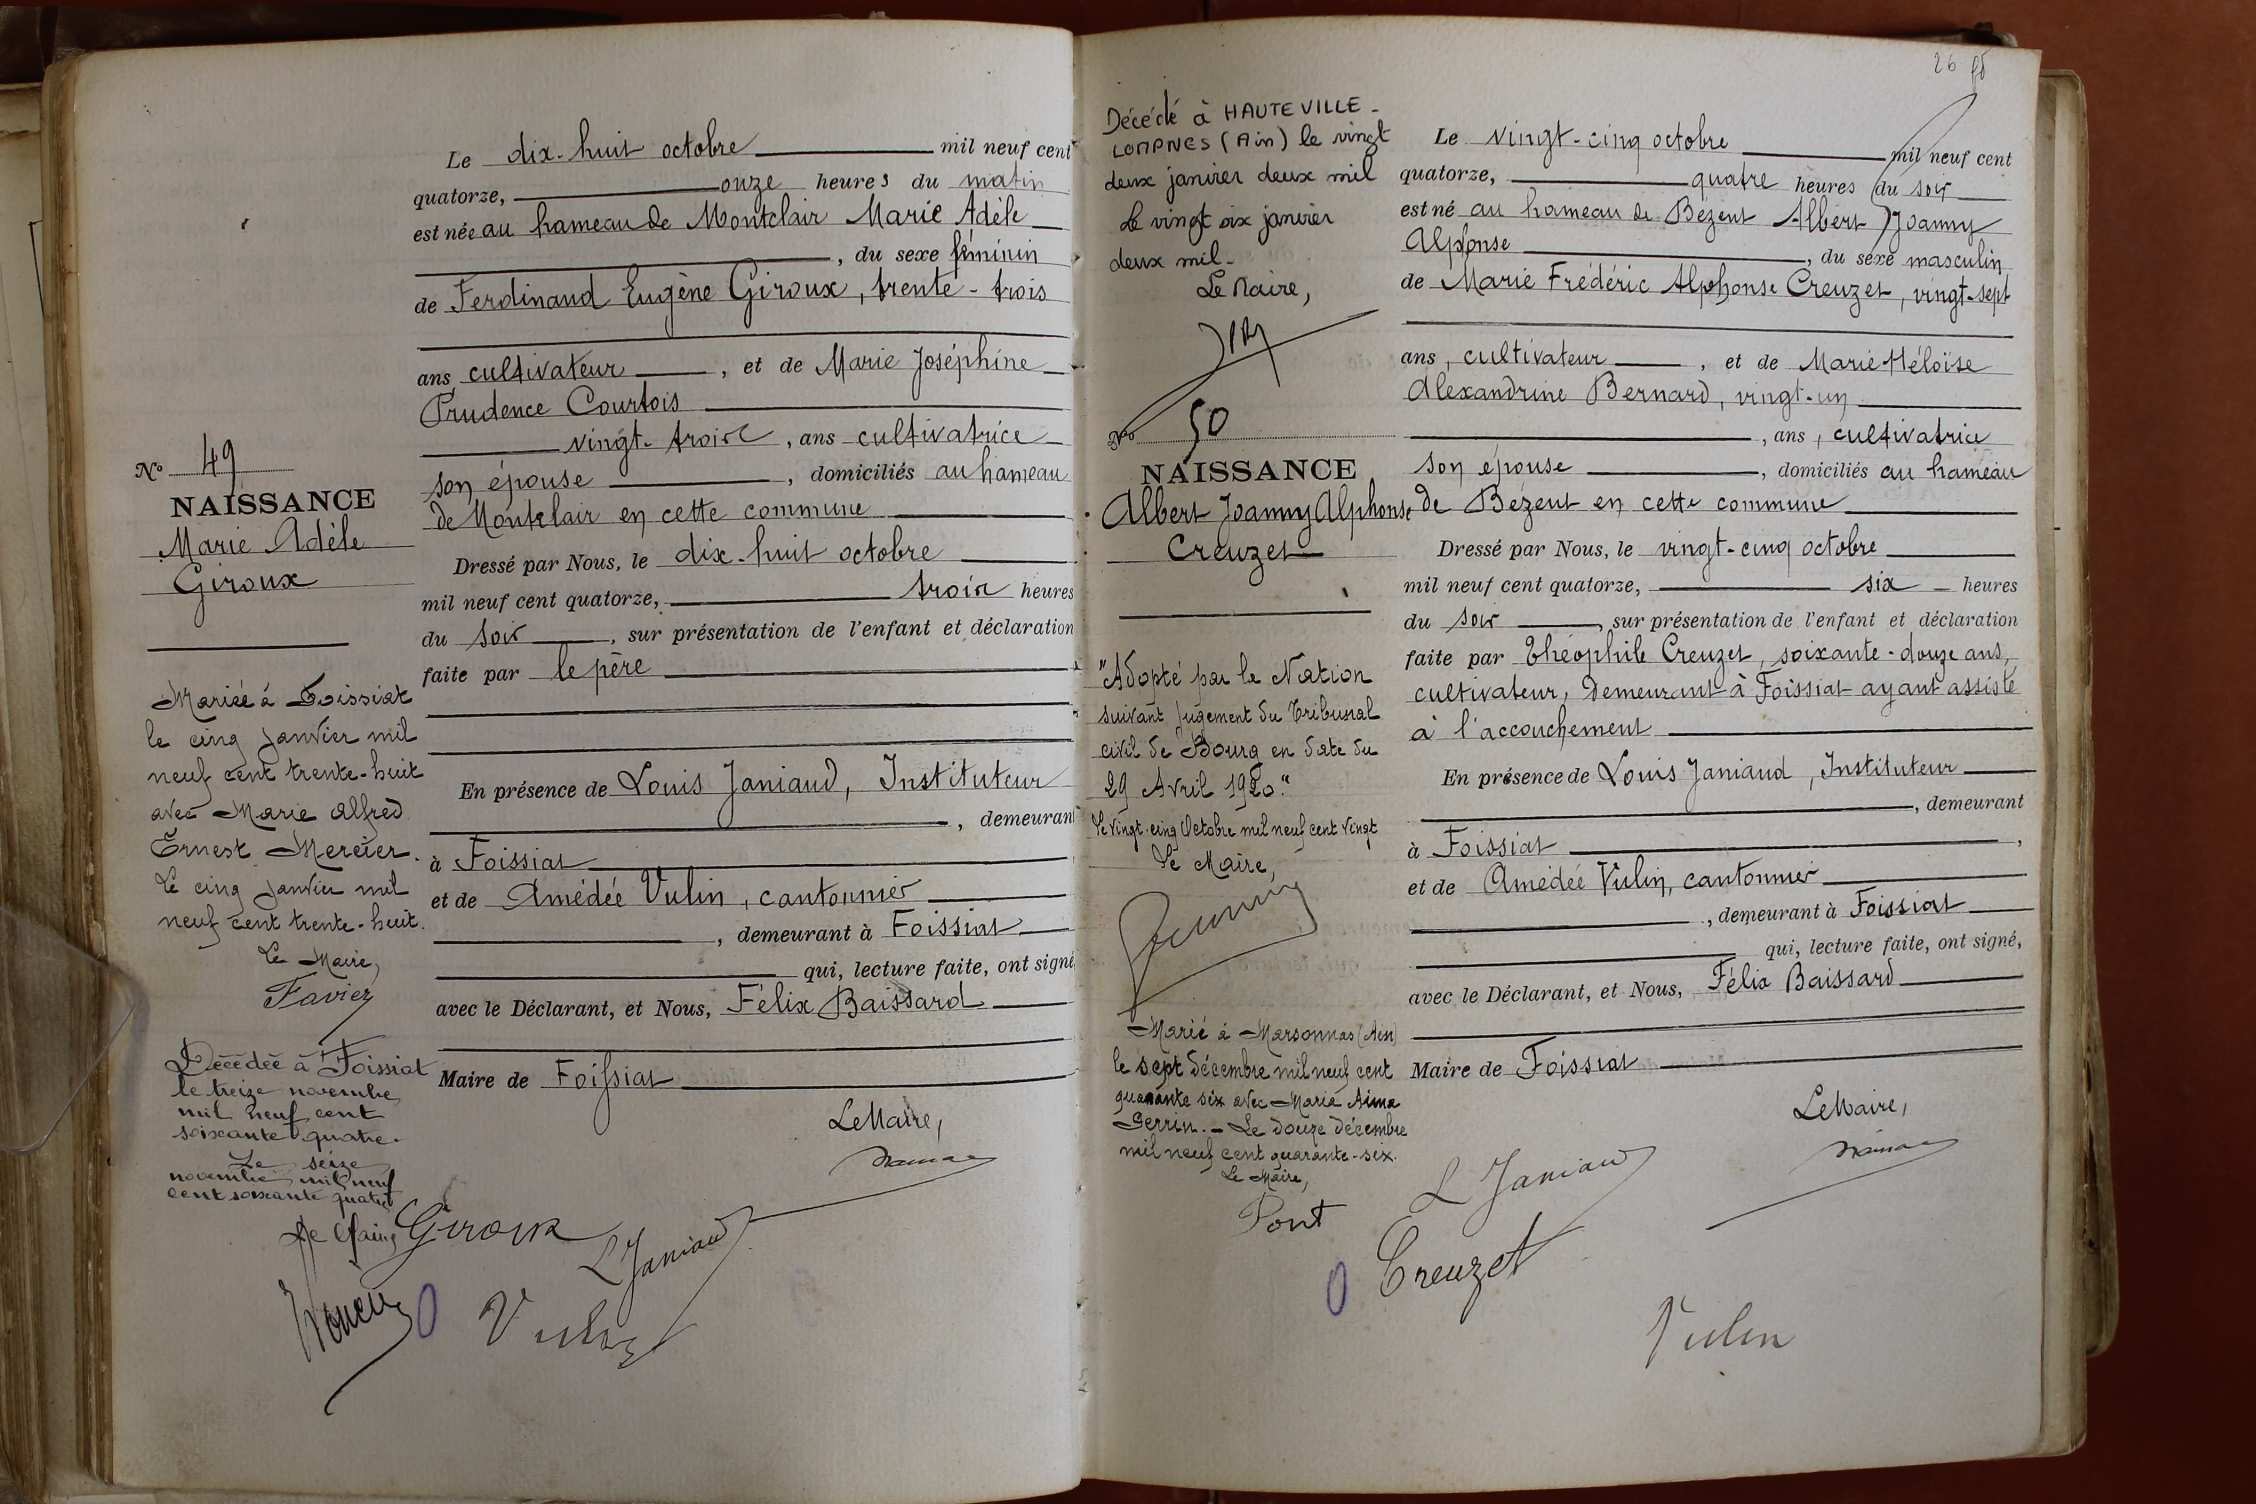 Le dix-huit octobre mil neuf cent
quatorze, onze heures du matin
est née au hameau de Montclair Marie Adèle
, du sexe féminin
de Ferdinand Eugène Giroux, trente-trois
ans, cultivateur, et de Marie Joséphine
Prudence Courtois
vingt-trois, ans cultivatrice
son épouse, domiciliés au hameau
de Montclair en cette commune
Dressé par Nous, le dix-huit octobre
mil neuf cent quatorze, trois heures
du soir, sur présentation de l'enfant et déclaration
faite par le père
En présence de Louis Janiaud, Instituteur
, demeurant
à Foissiat
et de Amédée Vulin, cantonnier
, demeurant à Foissiat
qui, lecture faite, ont signé
avec le Déclarant, et Nous, Félix Baissard
Maire de Foissiat
Le Maire,
Giroux
L Janiaud
Vulin
No 49
NAISSANCE
Marie Adèle
Giroux
Mariée à Foissiat
le cinq janvier mil
neuf cent trente-huit
avec Marie Alfred
Ernest Mercier.
Le cinq janvier mil
neuf cent trente-huit.
Le Maire,
Favier
Décédée à Foissiat
le treize novembre
mil neuf cent
soixante quatre.
Le seize
novembre mil neuf
cent soixante quatre
Le Maire
26
Décédé à HAUTEVILLE-
LOMPNES (Ain) le vingt
deux janvier deux mil
Le vingt six janvier
deux mil-
Le Maire,
No 50
NAISSANCE
Albert Joanny Alphonse
Creuzet
"Adopté par la Nation
suivant jugement du Tribunal
civil de Bourg en date du
29 Avril 1920."
Le vingt-cinq Octobre mil neuf cent vingt
Le Maire,
Marié à Marsonnas (Ain)
le sept décembre mil neuf cent
quarante six avec Marie Aima
Perrin. - Le douze décembre
mil neuf cent quarante-six.
Le Maire,
Pont
Le vingt-cinq octobre mil neuf cent
quatorze, quatre heures du soir
est né au hameau de Bézent Albert Joanny
Alphonse, du sexe masculin
de Marie Frédéric Alphonse Creuzet, vingt-sept
ans, cultivateur, et de Marie-Héloïse
Alexandrine Bernard, vingt-un
, ans, cultivatrice
son épouse, domiciliés au hameau
de Bézent en cette commune
Dressé par Nous, le vingt-cinq octobre
mil neuf cent quatorze, six heures
du soir, sur présentation de l'enfant et déclaration
faite par Théophile Creuzet, soixante-douze ans,
cultivateur, demeurant à Foissiat ayant assisté
à l'accouchement
En présence de Louis Janiaud, Instituteur
, demeurant
à Foissiat,
et de Amédée Vulin, cantonnier
, demeurant à Foissiat
qui, lecture faite, ont signé,
avec le Déclarant, et Nous, Félix Baissard
Maire de Foissiat
Le Maire,
L Janiaud
Creuzet
Vulin